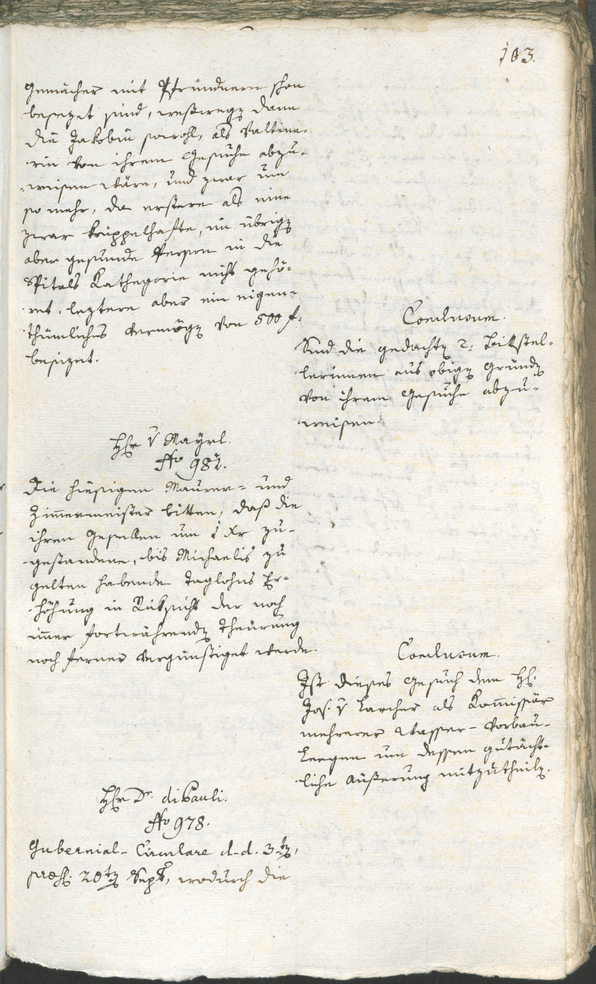 103.
Gemächer mit Pfründnern schon
besezet sind, weßwegen dann
die Jakobin sowohl, als Valtine-
rin von ihrem Gesuche abzu-
weisen wäre, und zwar um
so mehr, da erstere als eine
zwar krüppelhafte, im übrigen
aber gesunde Person in die
Spitals Kathegorie nicht gehö-
ret, leztere aber ein eigen-
thümliches Vermögen von 500 f.
besizet.
Conclusum.
Sind die gedachten 2: Bittstel-
lerinnen aus obigen Gründen
von ihrem Gesuche abzu-
weisen.
Hr v Mayrl.
No 981.
Die hiesigen Maurer- und
Zimmermeister bitten, daß die
ihren Gesellen um 1 Xr zu-
gestandene, bis Michaelis zu
gelten habende Taglohns Er-
höhung in Rüksicht der noch
immer fortwährenden Theurung
noch ferner vergünstiget werde.
Conclusum.
Ist dieses Gesuch dem H:
Jos: v Larcher als Kommissär
mehrerer Wasser-Verbau-
ungen um dessen gutächt-
liche Äußerung mitzutheilen.
Hr Dr. diPauli.
No 978.
Gubernial-Circulare d. d. 3ten,
præs: 20ten Sept, wodurch die